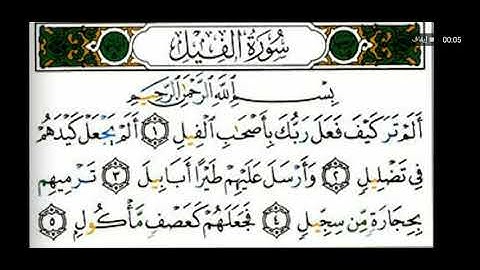 إيقاف 00:05
سُورَةُ الفِيلِ
بِسْمِ اللَّهِ الرَّحْمَٰنِ الرَّحِيمِ
أَلَمْ تَرَ كَيْفَ فَعَلَ رَبُّكَ بِأَصْحَابِ الْفِيلِ ١ أَلَمْ يَجْعَلْ كَيْدَهُمْ
فِي تَضْلِيلٍ ٢ وَأَرْسَلَ عَلَيْهِمْ طَيْرًا أَبَابِيلَ ٣ تَرْمِيهِم
بِحِجَارَةٍ مِّن سِجِّيلٍ ٤ فَجَعَلَهُمْ كَعَصْفٍ مَّأْكُولٍ ٥